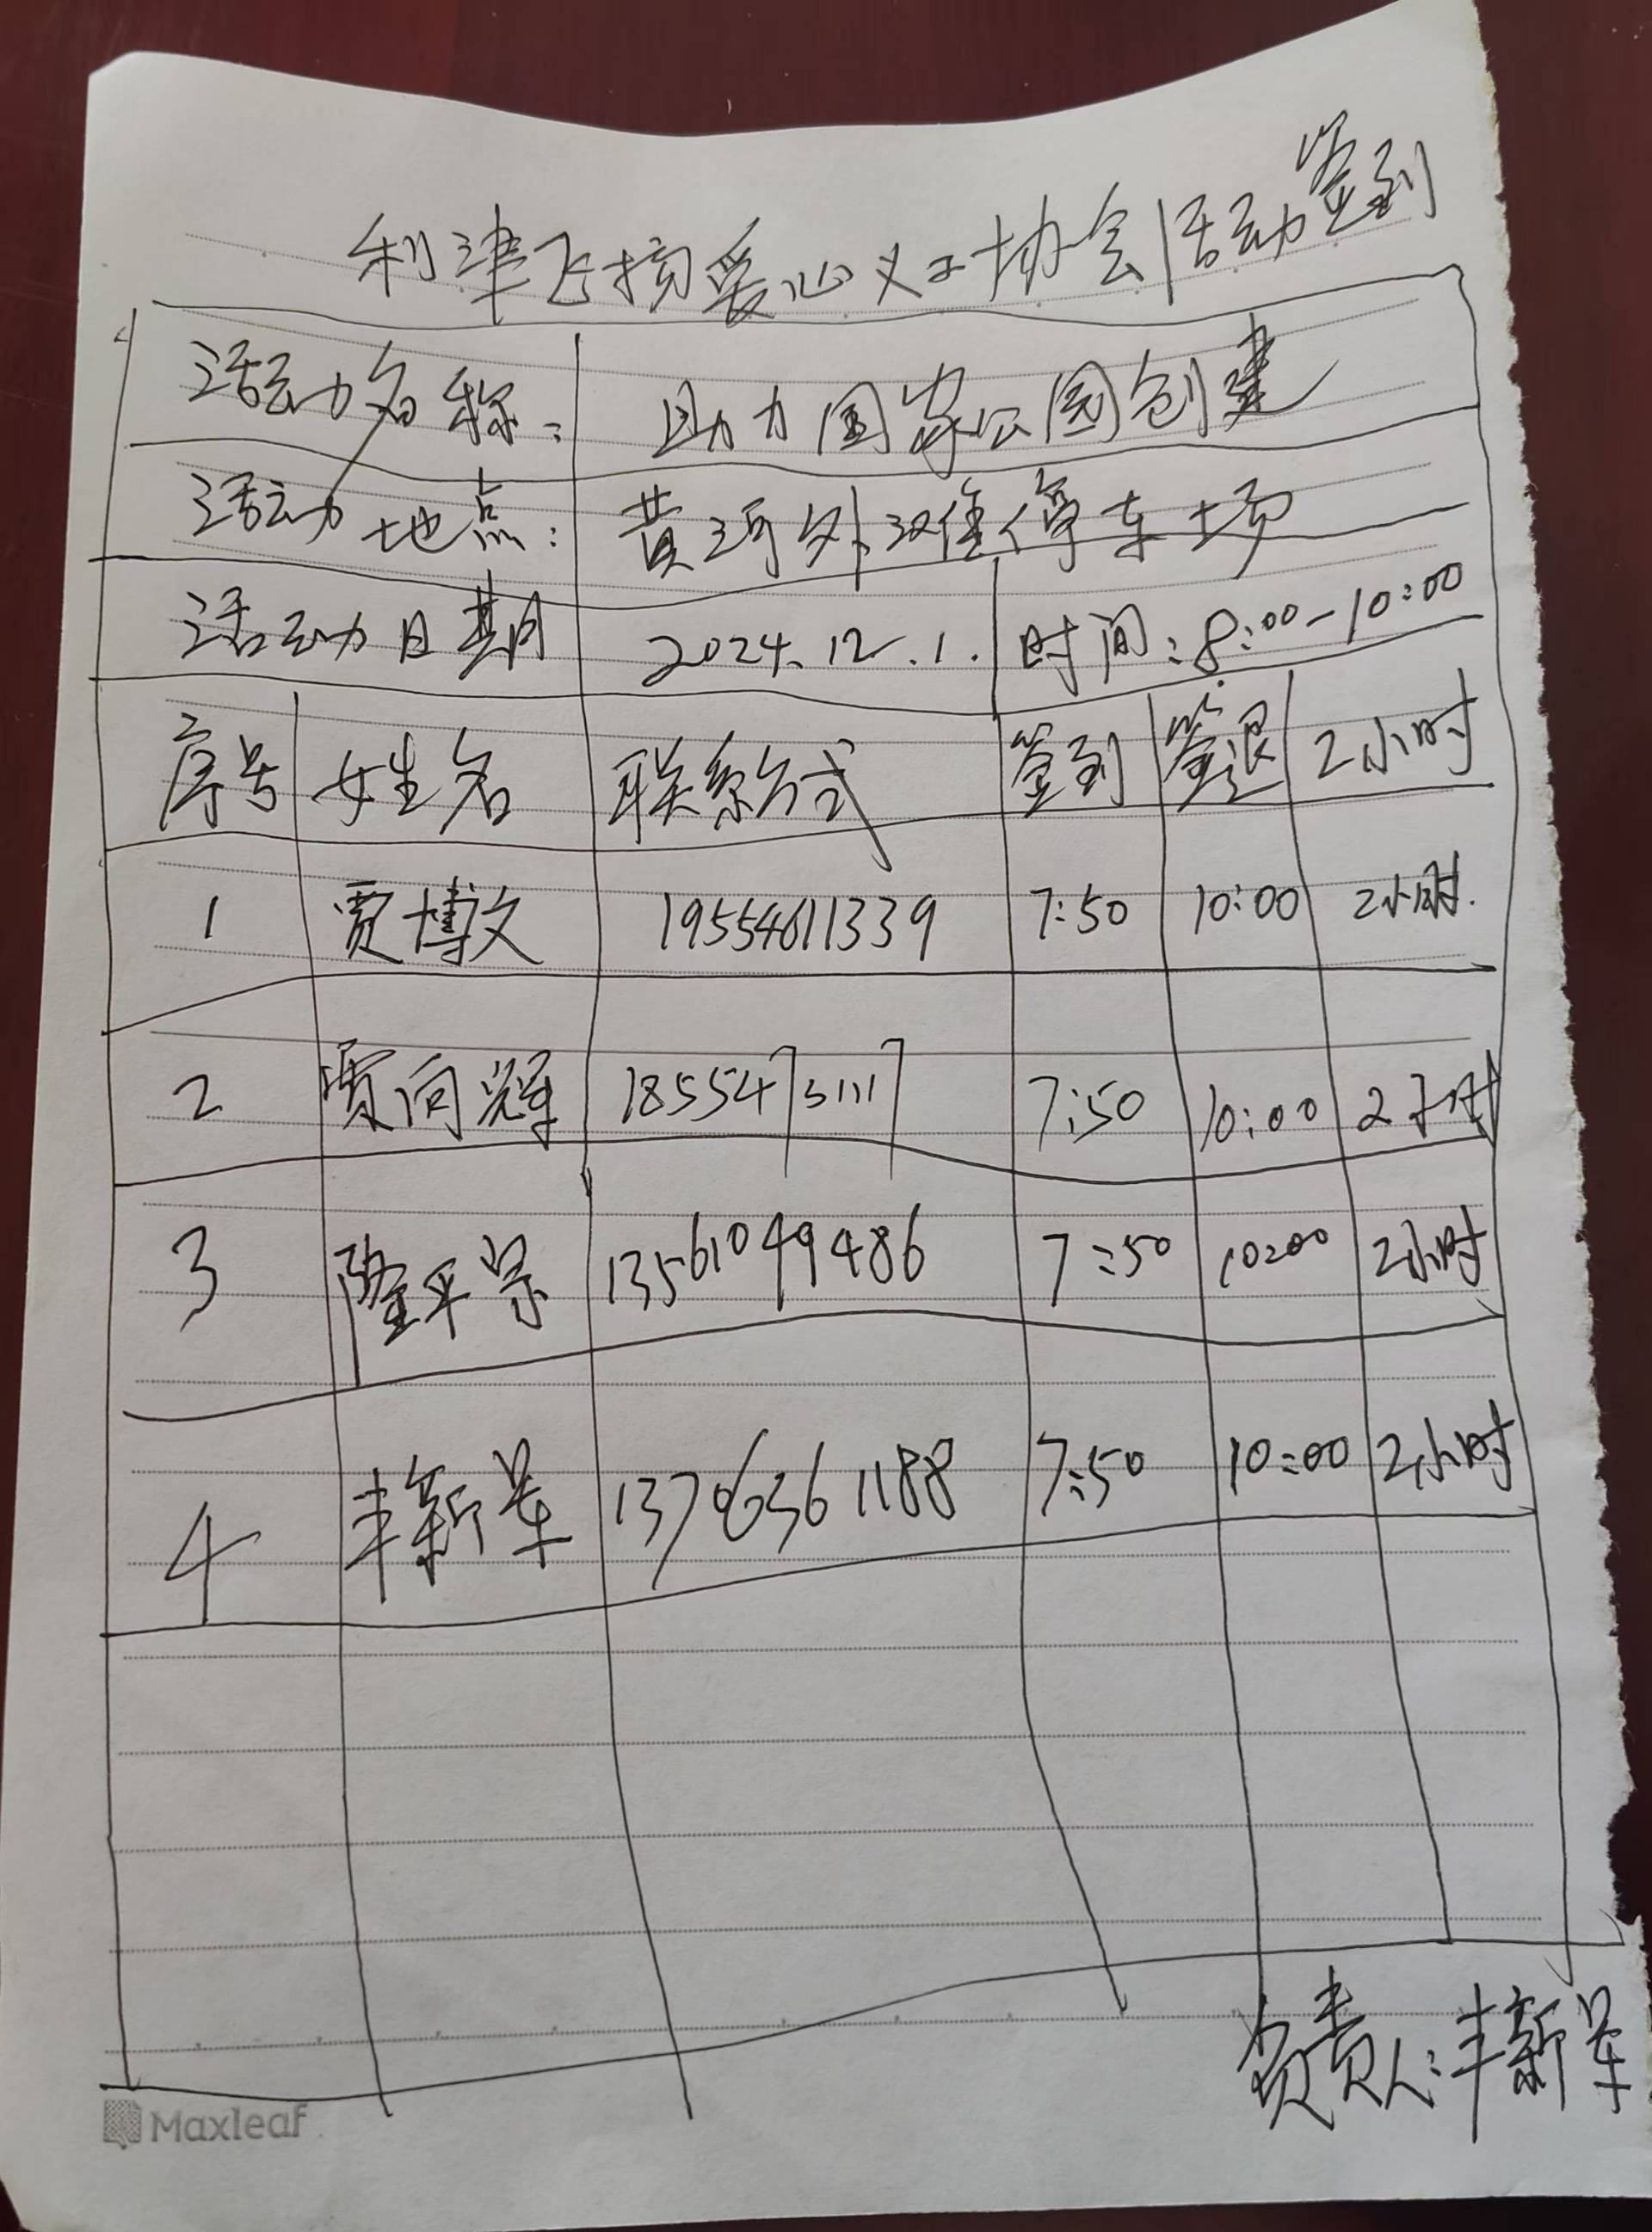 利津飞扬爱心义工协会活动签到
活动名称: 助力国家公园创建
活动地点: 黄河外滩停车场
活动日期 2024.12.1. 时间:8:00-10:00
序号 姓名 联系方式 签到 签退 2小时
1 贾博文 19554611339 7:50 10:00 2小时.
2 贾向辉 18554731117 7:50 10:00 2小时
3 隆平 13561049486 7:50 10:00 2小时
4 丰新军 13706361188 7:50 10:00 2小时
负责人:丰新军
Maxleaf